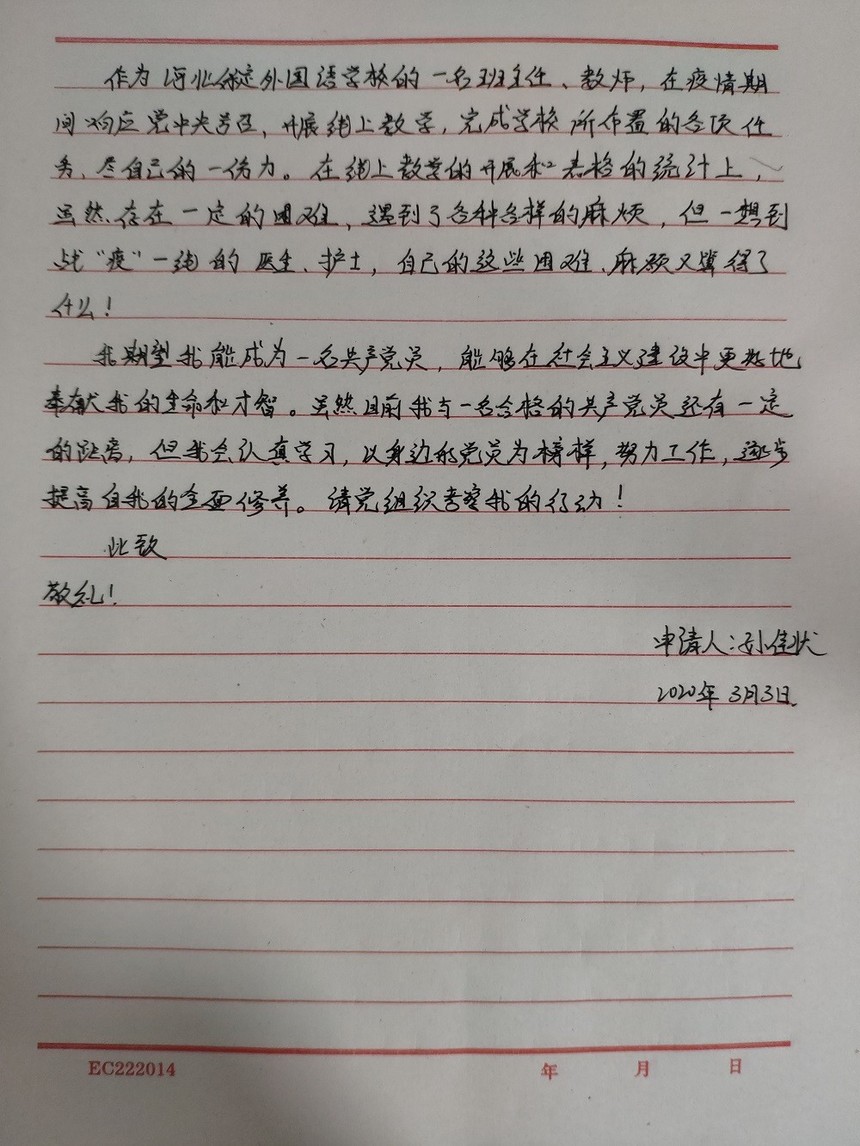 作为河北保定外国语学校的一名班主任、教师，在疫情期
间响应党中央号召，开展线上教学，完成学校所布置的各项任
务，尽自己的一份力。在线上教学的开展和表格的统计上，
虽然存在一定的困难，遇到了各种各样的麻烦，但一想到
战“疫”一线的医生、护士，自己的这些困难、麻烦又算得了
什么！
我期望我能成为一名共产党员，能够在社会主义建设中更好地
奉献我的生命和才智。虽然目前我与一名合格的共产党员还有一定
的距离，但我会认真学习，以身边的党员为榜样，努力工作，逐步
提高自我的全面修养。请党组织考察我的行动！
此致
敬礼！
申请人：孙佳
2020年3月3日
EC222014 年 月 日